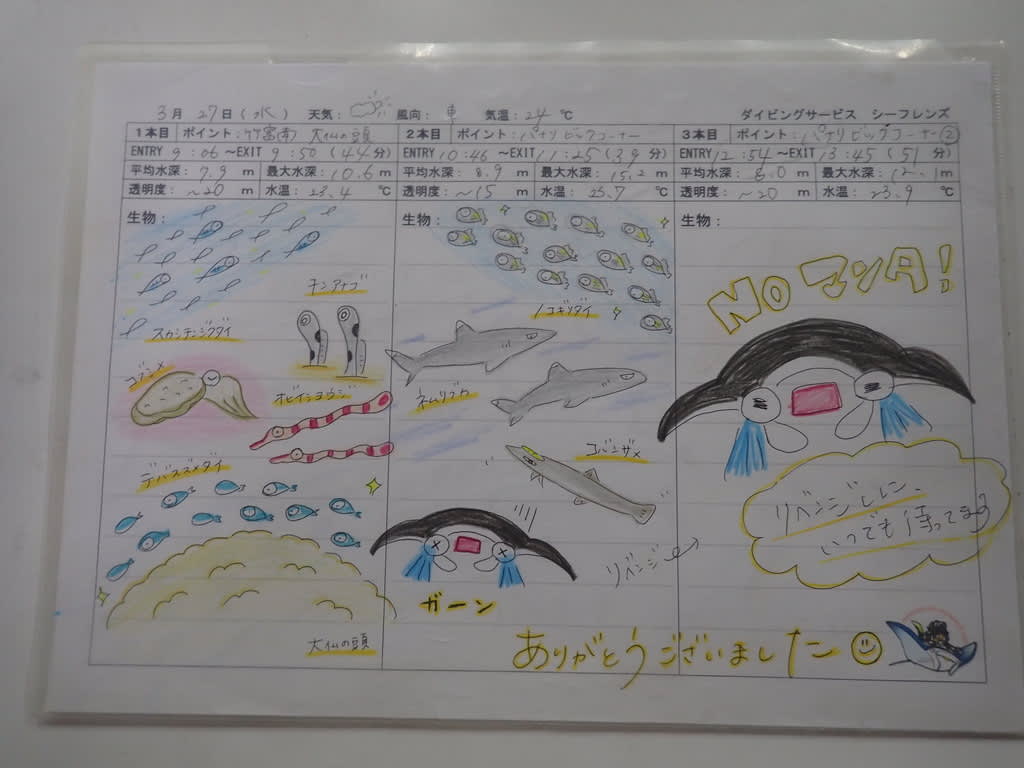 3月 27日(水) 天気: 風向: 東 気温: 24 ℃ ダイビングサービス シーフレンズ
1本目 ポイント: 竹富南 大仏の頭 2本目 ポイント: パナリ ビッグコーナー 3本目 ポイント: パナリ ビッグコーナー②
ENTRY 9:06 ～EXIT 9:50 (44分) ENTRY 10:46 ～EXIT 11:25 (39分) ENTRY 12:54 ～EXIT 13:45 (51分)
平均水深: 7.9 m 最大水深: 10.6 m 平均水深: 8.9 m 最大水深: 15.2 m 平均水深: 8.0 m 最大水深: 12.1 m
透明度: ～20 m 水温: 23.4 ℃ 透明度: ～15 m 水温: 23.7 ℃ 透明度: ～20 m 水温: 23.9 ℃
生物:
スカシテンジクダイ
チンアナゴ
コブシメ
オビイショウジ
デバスズメダイ
大仏の頭
生物:
ノコギリダイ
ネムリブカ
コバンザメ
ガーン
リベンジ
生物:
NO マンタ!
リベンジしにに、
いつでも待ってます
ありがとうございました